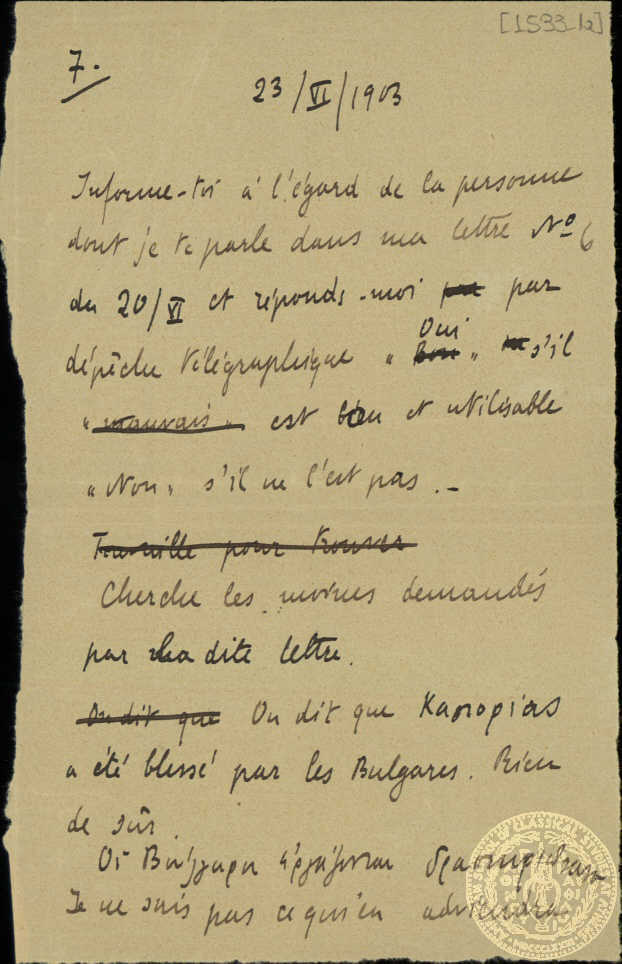 [1593/2]
7.
23/VI/1903
Informe-toi à l'égard de la personne
dont je te parle dans ma lettre Nº 6
du 20/VI et réponds-moi par
dépêche télégraphique " Oui " s'il
" mauvais " est bien et utilisable
" Non " s'il ne l'est pas. -
Travaille pour trouver
Cherche les moines demandés
par la dite lettre.
On dit que On dit que
a été blessé par les Bulgares. Rien
de sûr.
Οἱ Βούλγαροι ἐργάζονται
Je ne sais pas ce qui en adviendra